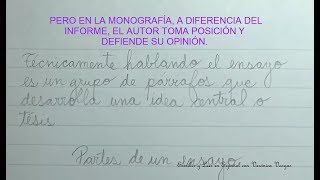 PERO EN LA MONOGRAFÍA, A DIFERENCIA DEL
INFORME, EL AUTOR TOMA POSICIÓN Y
DEFIENDE SU OPINIÓN.
Técnicamente hablando el ensayo
es un grupo de párrafos que
desarrolla una idea sentral o
tésis
Partes de un ensayo
Escribir y Leer en Español con Verónica Vargas